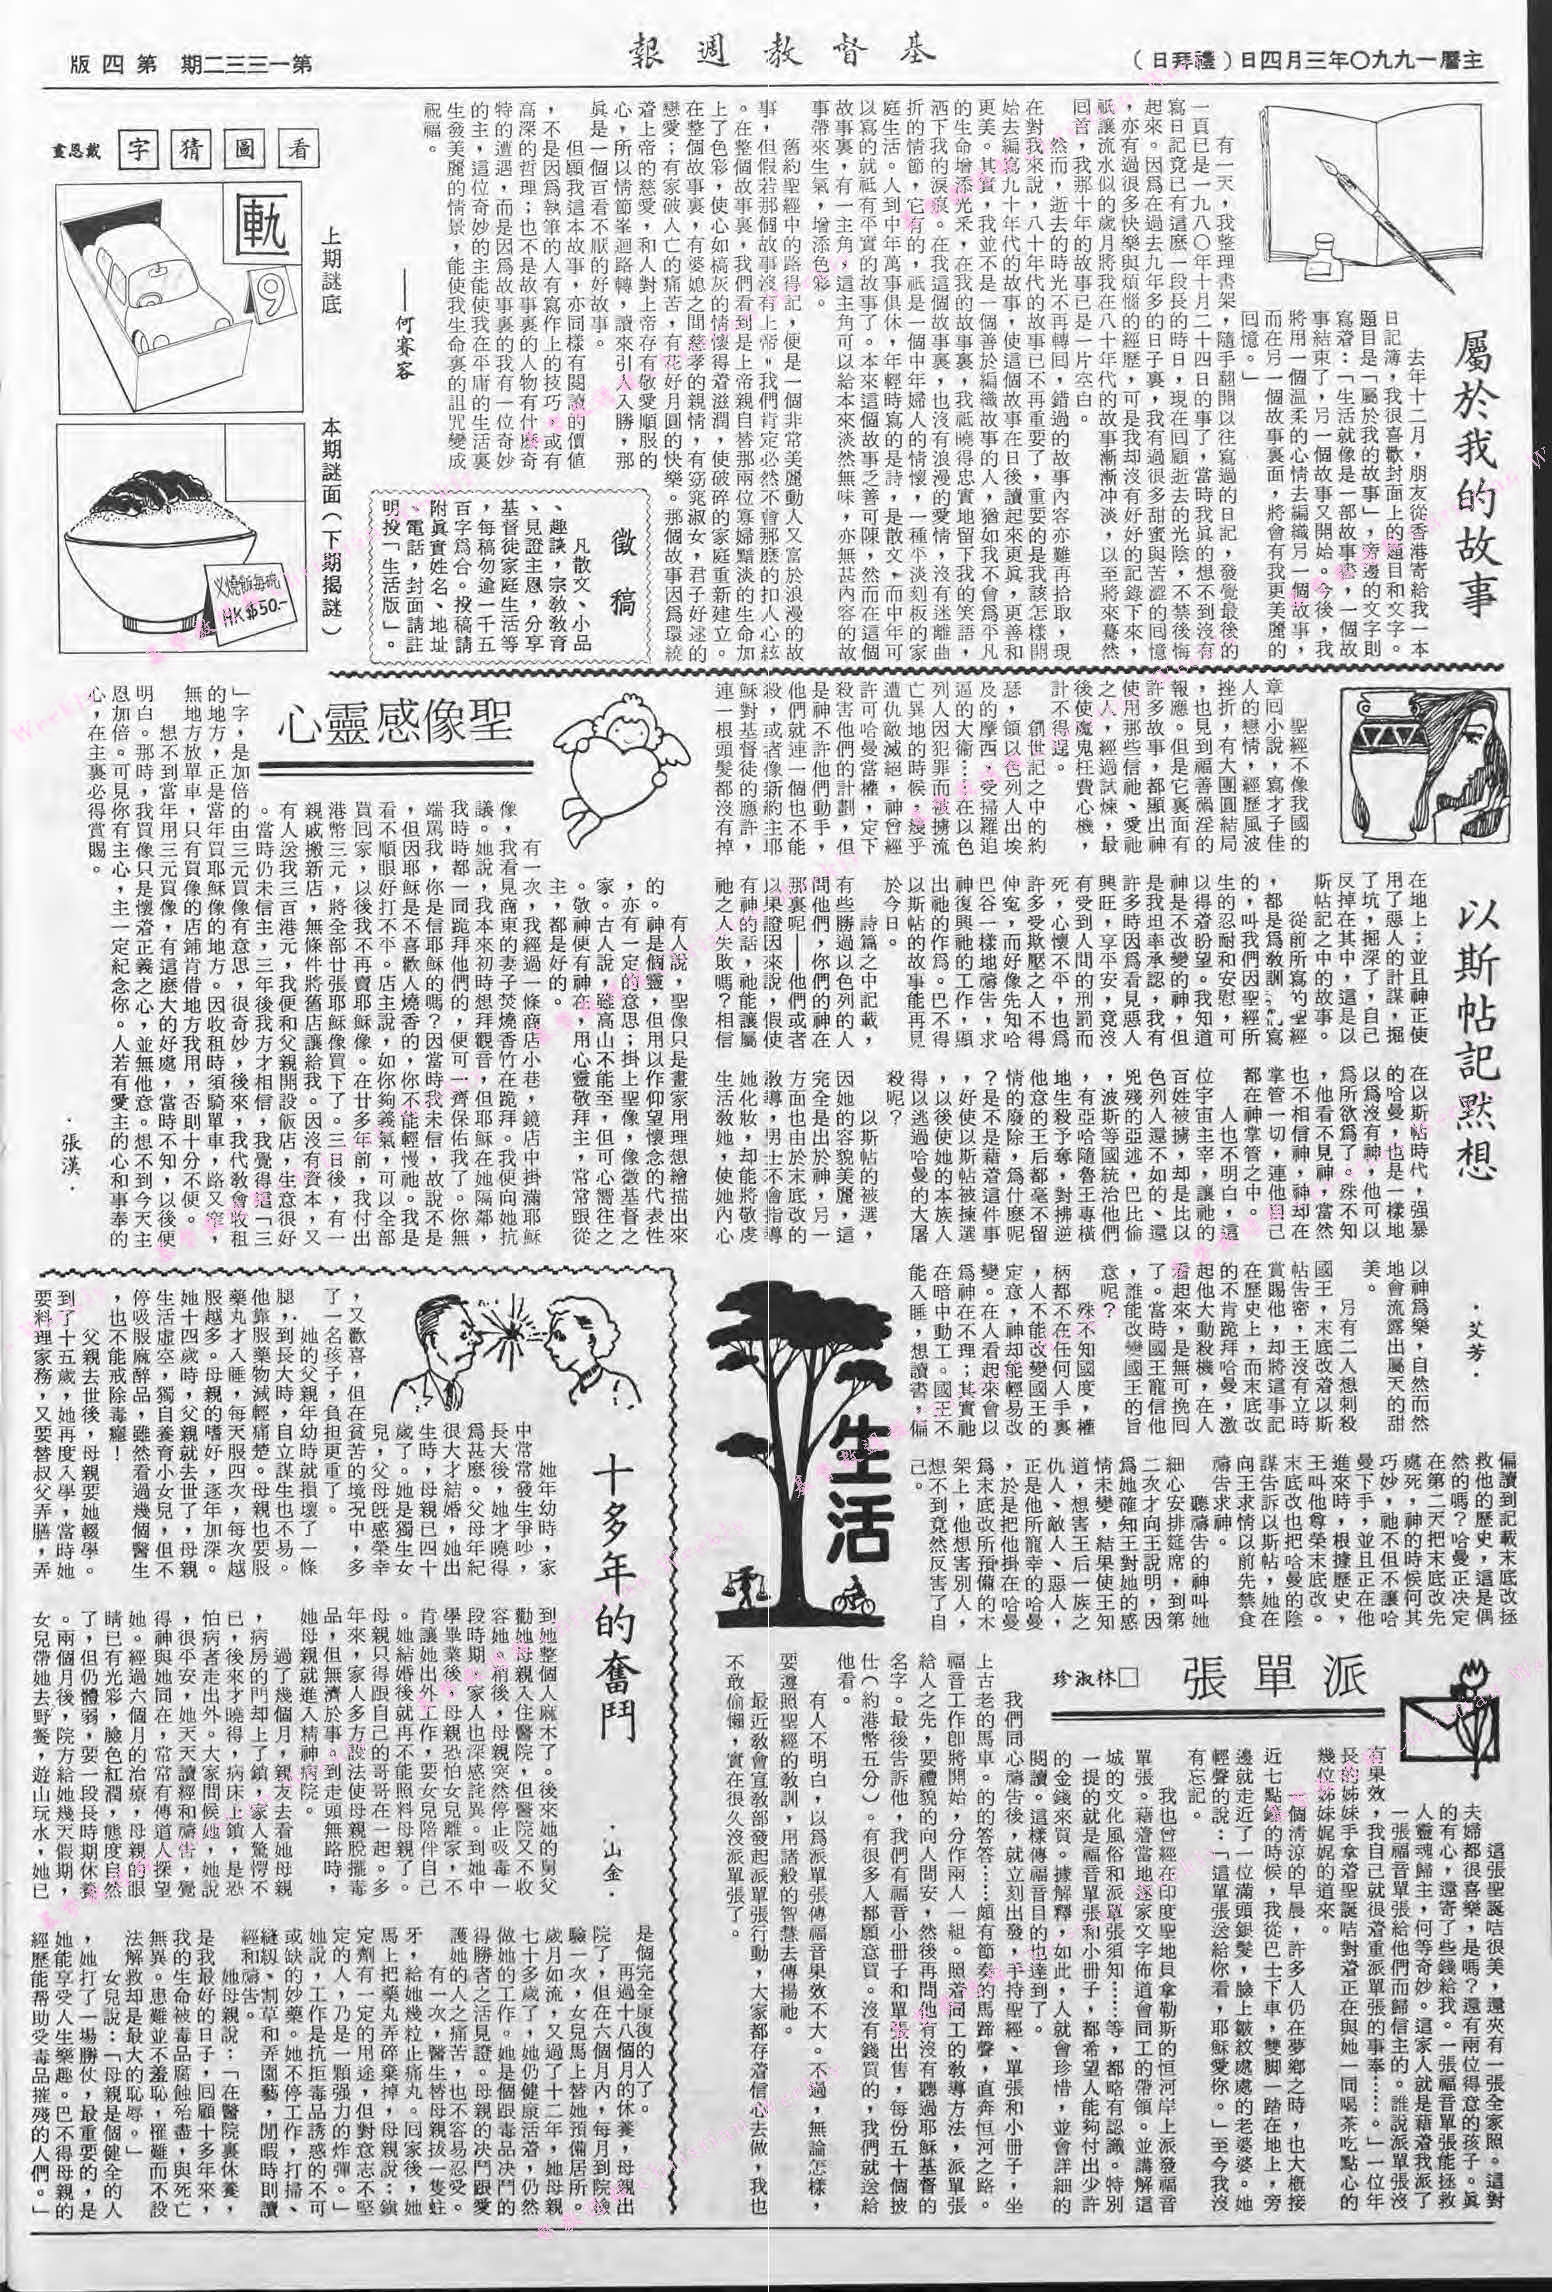 主曆一九九〇年三月四日（禮拜日）
基督教週報
第一三三二期 第四版
屬於我的故事
去年十二月，朋友從香港寄給我一本
日記簿，我很喜歡封面上的題目和文字。
題目是「屬於我的故事」，旁邊的文字則
寫着：「生活就像是一部故事書，一個故
事結束了，另一個故事又開始。今後，我
將用一個溫柔的心情去編織另一個故事，
而在另一個故事裏面，將會有我更美麗的
回憶。」
有一天，我整理書架，隨手翻開以往寫過的日記，發覺最後的
一頁已是一九八〇年十月二十四日的事了，當時我真的想不到沒有
寫日記竟已有這麼一段長的時日，現在回顧逝去的光陰，不禁後悔
起來。因爲在過去九年多的日子裏，我有過很多甜蜜與苦澀的回憶
，亦有過很多快樂與煩惱的經歷，可是我却沒有好好的記錄下來，
祇讓流水似的歲月將我在八十年代的故事漸漸冲淡，以至將來驀然
回首，我那十年的故事已是一片空白。
然而，逝去的時光不再轉回，錯過的故事內容亦難再拾取，現
在對我來說，八十年代的故事已不再重要了，重要的是我該怎樣開
始去編寫九十年代的故事，使這個故事在日後讀起來更眞，更善和
更美。其實，我並不是一個善於編織故事的人，猶如我不會爲平凡
的生命增添光釆，在我的故事裏，我祇曉得忠實地留下我的笑語，
洒下我的淚痕。在我這個故事裏，也沒有浪漫的愛情，沒有迷離曲
折的情節，它有的，祇是一個中年婦人的情懷，一種平淡刻板的家
庭生活。人到中年萬事俱休，年輕時寫的是詩，是散文，而中年可
以寫的就祇有平實的故事了。本來這個故事之善可陳，然而在這個
故事裏，有一主角，這主角可以給本來淡然無味，亦無甚內容的故
事帶來生氣，增添色彩。
舊約聖經中的路得記，便是一個非常美麗動人又富於浪漫的故
事，但假若那個故事沒有上帝。我們肯定必然不會那麼的扣人心絃
。在整個故事裏，我們看到是上帝親自替那兩位寡婦黯淡的生命加
上了色彩，使心如槁灰的情懷得着滋潤，使破碎的家庭重新建立。
在整個故事裏，有婆媳之間慈孝的親情，有窈窕淑女，君子好逑的
戀愛；有家破人亡的痛苦，有花好月圓的快樂。那個故事因爲環繞
着上帝的慈愛，和人對上帝存有敬愛順服的
心，所以情節峯迴路轉，讀來引人入勝，那
眞是一個百看不厭的好故事。
但願我這本故事，亦同樣有閱讀的價值
，不是因爲執筆的人有寫作上的技巧，或有
高深的哲理；也不是故事裏的人物有什麼奇
特的遭遇，而是因爲故事裏的我有一位奇妙
的主，這位奇妙的主能使我在平庸的生活裏
生發美麗的情景，能使我生命裏的詛咒變成
祝福。
——何賽容
徵稿
凡散文、小品
、趣談，宗敎敎育
、見證主恩，分享
基督徒家庭生活等
，每稿勿逾一千五
百字爲合。投稿請
附眞實姓名、地址
、電話，封面請註
明投「生活版」。
看圖猜字
戴恩畫
上期謎底
軌
9
本期謎面（下期揭謎）
叉燒飯每碗
HK$50.-
以斯帖記默想
·艾芳·
聖經不像我國的
章回小說，寫才子佳
人的戀情，經歷風波
挫折，有大團圓結局
，也見到福善禍淫的
報應。但是它裏面有
許多故事，都顯出神
使用那些信祂、愛祂
之人，經過試煉，最
後使魔鬼枉費心機，
計不得逞。
創世記之中的約
瑟，領以色列人出埃
及的摩西，受掃羅追
逼的大衞……在以色
列人因犯罪而被擄流
亡異地的時候，幾乎
遭仇敵滅絕，神曾經
許可哈曼當權，定下
殺害他們的計劃，但
是神不許他們動手，
他們就連一個也不能
殺，或者像新約主耶
穌對基督徒的應許，
連一根頭髮都沒有掉
在地上；並且神正使
用了惡人的計謀，掘
了坑，掘深了，自己
反掉在其中，這是以
斯帖記之中的故事。
從前所寫的聖經
，都是爲敎訓　　寫
的，叫我們因聖經所
生的忍耐和安慰，可
以得着盼望。我知道
神是不改變的神，但
是我坦率承認，我有
許多時因爲看見惡人
興旺，享平安，竟沒
有受到人間的刑罰而
死，心懷不平，也爲
許多受欺壓之人不得
伸寃，而好像先知哈
巴谷一樣地禱告，求
神復興祂的工作，顯
出祂的作爲。巴不得
以斯帖的故事能再見
於今日。
詩篇之中記載，
有些勝過以色列的人
問他們，你們的神在
那裏呢——他們或者
以果證因來說，假使
有神的話，祂能讓屬
祂之人失敗嗎？相信
在以斯帖時代，强暴
的哈曼，也是一樣地
以爲沒有神，他可以
爲所欲爲了。殊不知
，他看不見神，當然
也不相信神，神却在
掌管一切，連他自己
都在神掌管之中。
人也不明白，這
位宇宙主宰，讓祂的
百姓被擄，却是比以
色列人還不如的、還
兇殘的亞述，巴比倫
，波斯等國統治他們
，有亞哈隨魯王專橫
地生殺予奪，對拂逆
他意的王后都毫不留
情的廢除，爲什麼呢
？是不是藉着這件事
，好使以斯帖被揀選
，以後使她的本族人
得以逃過哈曼的大屠
殺呢？
以斯帖的被選，
因她的容貌美麗，這
完全是出於神，另一
方面也由於末底改的
敎導，男士不會指導
她化妝，却能將敬虔
生活敎她，使她內心
以神爲樂，自然而然
地會流露出屬天的甜
美。
另有二人想刺殺
國王，末底改着以斯
帖告密，王沒有立時
賞賜他，却將這事記
在歷史上，而末底改
的不肯跪拜哈曼，激
起他大動殺機，在人
看起來，是無可挽回
了。當時國王寵信他
，誰能改變國王的旨
意呢？
殊不知國度，權
柄都不在任何人手裏
，人不能改變國王的
定意，神却能輕易改
變。在人看起來會以
爲神在不理；其實祂
在暗中動工。國王不
能入睡，想讀書，偏
偏讀到記載末底改拯
救他的歷史，這是偶
然的嗎？哈曼正決定
在第二天把末底改先
處死，神的時候何其
巧妙，祂不但不讓哈
曼下手，並且正在他
進來時，根據歷史，
王叫他尊榮末底改。
末底改也把哈曼的陰
謀告訴以斯帖，她在
向王求情以前先禁食
禱告求神。
聽禱告的神叫她
細心安排筵席，到第
二次才向王說明，因
爲她確知王對她的感
情未變，結果使王知
道，想害王后一族之
仇人、敵人、惡人，
正是他所寵幸的哈曼
，於是把他掛在哈曼
爲末底改所預備的木
架上，他想害別人，
想不到竟然反害了自
己。
聖像感靈心
·張漢·
有一次，我經過一條商店小巷，鏡店中掛滿耶穌
像，我看見商東的妻子焚燒香竹在跪拜。我便向她抗
議。她說，我本來初時想拜觀音，但耶穌在她隔鄰，
我時時都一同跪拜他們的，便可一齊保佑我了。你無
端罵我，你是信耶穌的嗎？因當時我未信，故說不是
，但因耶穌是不喜歡人燒香的，你不能輕慢祂。我是
看不順眼好打不平。店主說，如你夠義氣，可以全部
買回家，以後我不再賣耶穌像。在廿多年前，我付出
港幣三元，將全部廿張耶穌像買下了。三日後，有一
親戚搬新店，無條件將舊店讓給我。因沒有資本，又
有人送我三百港元，我便和父親開設飯店，生意很好
。當時仍未信主，三年後我方才相信，我覺得這「三
」字，是加倍的由三元買像有意思，很奇妙，後來，我代敎會收租
的地方，正是當年買耶穌像的地方。因收租時須騎單車，路又窄，
無地方放單車，只有買像的店鋪肯借地方我用，否則十分不便。
想不到當年用三元買像，有這麼大的好處，當時不知，以後便
明白。那時，我買像只是懷着正義之心，並無他意。想不到今天主
恩加倍。可見你有主心，主一定紀念你。人若有愛主的心和事奉的
心，在主裏必得賞賜。
有人說，聖像只是畫家用理想繪描出來
的。神是個靈，但用以作仰望懷念的代表性
，亦有一定的意思；掛上聖像，像徵基督之
家。古人說，雖高山不能至，但可心嚮往之
。敬神便有神在，用心靈敬拜主，常常跟從
主，都是好的。
生活
十多年的奮鬥
·山金·
她年幼時，家
中常常發生爭吵，
長大後，她才曉得
爲甚麼。父母年紀
很大才結婚，她出
生時，母親已四十
歲了。她是獨生女
兒，父母旣感榮幸
，又歡喜，但在貧苦的境況中，多
了一名孩子，負担更重了。
她的父親年幼時就損壞了一條
腿，到長大時，自立謀生也不易。
他靠服藥物減輕痛楚。母親也要服
藥丸才入睡，每天服四次，每次越
服越多。母親的嗜好，逐年加深。
她十四歲時，父親就去世了，母親
生活虛空，獨自養育小女兒，但不
停吸服麻醉品，雖然看過幾個醫生
，也不能戒除毒癮！
父親去世後，母親要她輟學。
到了十五歲，她再度入學，當時她
要料理家務，又要替叔父弄膳，弄
到她整個人麻木了。後來她的舅父
勸她母親入住醫院，但醫院又不收
容她。稍後，母親突然停止吸毒一
段時期。家人也深感詫異。到她中
學畢業後，母親恐怕女兒離家，不
肯讓她出外工作，要女兒陪伴自己
。她結婚後就再不能照料母親了。
母親只得跟自己的哥哥在一起。多
年來，家人多方設法使母親脫擺毒
品，但無濟於事。到走頭無路時，
她母親就進入精神病院。
過了幾個月，親友去看她母親
，病房的門却上了鎖，家人驚愕不
已，後來才曉得，病床上鎖，是恐
怕病者走出外。大家問候她，她說
，很平安，她天天讀經和禱告，覺
得神與她同在，常常有傳道人探望
她。經過六個月的治療，母親的眼
睛已有光彩，臉色紅潤，態度自然
了，但仍體弱，要一段長時期休養
。兩個月後，院方給她幾天假期，
女兒帶她去野餐，遊山玩水，她已
是個完全康復的人了。
再過十八個月的休養，母親出
院了，但在六個月內，每月到院檢
驗一次，女兒馬上替她預備居所。
歲月如流，又過了十二年，她母親
七十多歲了，她仍健康活着，仍然
做她的工作。她是個跟毒品決鬥的
得勝者之活見證。母親的決鬥跟愛
護她的人之痛苦，也不容易忍受。
有一次，醫生替母親拔一隻蛀
牙，給她幾粒止痛丸。回家後，她
馬上把藥丸弄碎棄掉，母親說：鎭
定劑有一定的用途，但對意志不堅
定的人，乃是一顆强力的炸彈。」
她說，工作是抗拒毒品誘惑的不可
或缺的妙藥。她不停工作，打掃、
縫紉、割草和弄園藝，閒暇時則讀
經和禱告。
她母親說：「在醫院裏休養，
是我最好的日子，回顧十多年來，
我的生命被毒品腐蝕殆盡，與死亡
無異。患難並不羞恥，罹難而不設
法解救却是最大的恥辱。」
女兒說：「母親是個健全的人
，她打了一場勝仗，最重要的，是
她能享受人生樂趣。巴不得母親的
經歷能帮助受毒品摧殘的人們。」
派單張
□林淑珍
這張聖誕咭很美，還夾有一張全家照。這對
夫婦都很喜樂，是嗎？還有兩位得意的孩子。眞
的有心，還寄了些錢給我。一張福音單張能拯救
人靈魂歸主，何等奇妙。這家人就是藉着我派了
一張福音單張給他們而歸信主的。誰說派單張沒
有果效，我自己就很着重派單張的事奉……。」一位年
長的姊妹手拿着聖誕咭對着正在與她一同喝茶吃點心的
幾位姊妹娓娓的道來。
一個清涼的早晨，許多人仍在夢鄉之時，也大槪接
近七點鐘的時候，我從巴士下車，雙脚一踏在地上，旁
邊就走近了一位滿頭銀髮，臉上皺紋處處的老婆婆。她
輕聲的說：「這單張送給你看，耶穌愛你。」至今我沒
有忘記。
我也曾經在印度聖地貝拿勒斯的恒河岸上派發福音
單張。藉着當地逐家文字佈道會同工的帶領。並講解這
城的文化風俗和派單張須知……等，都略有認識。特別
一提的就是福音單張和小冊子，都希望人能夠付出少許
的金錢來買。據解釋，如此，人就會珍惜，並會詳細的
閱讀。這樣傳福音目的也達到了。
我們同心禱告後，就立刻出發，手持聖經、單張和小冊子，坐
上古老的馬車。的的答答……頗有節奏的馬蹄聲，直奔恒河之路。
福音工作卽將開始，分作兩人一組。照着同工的敎導方法，派單張
給人之先，要禮貌的向人問安，然後再問他有沒有聽過耶穌基督的
名字。最後告訴他，我們有福音小冊子和單張出售，每份五十個披
仕（約港幣五分）。有很多人都願意買。沒有錢買的，我們就送給
他看。
有人不明白，以爲派單張傳福音果效不大。不過，無論怎樣，
要遵照聖經的敎訓，用諸般的智慧去傳揚祂。
最近敎會宣敎部發起派單張行動，大家都存着信心去做，我也
不敢偷懶，實在很久沒派單張了。